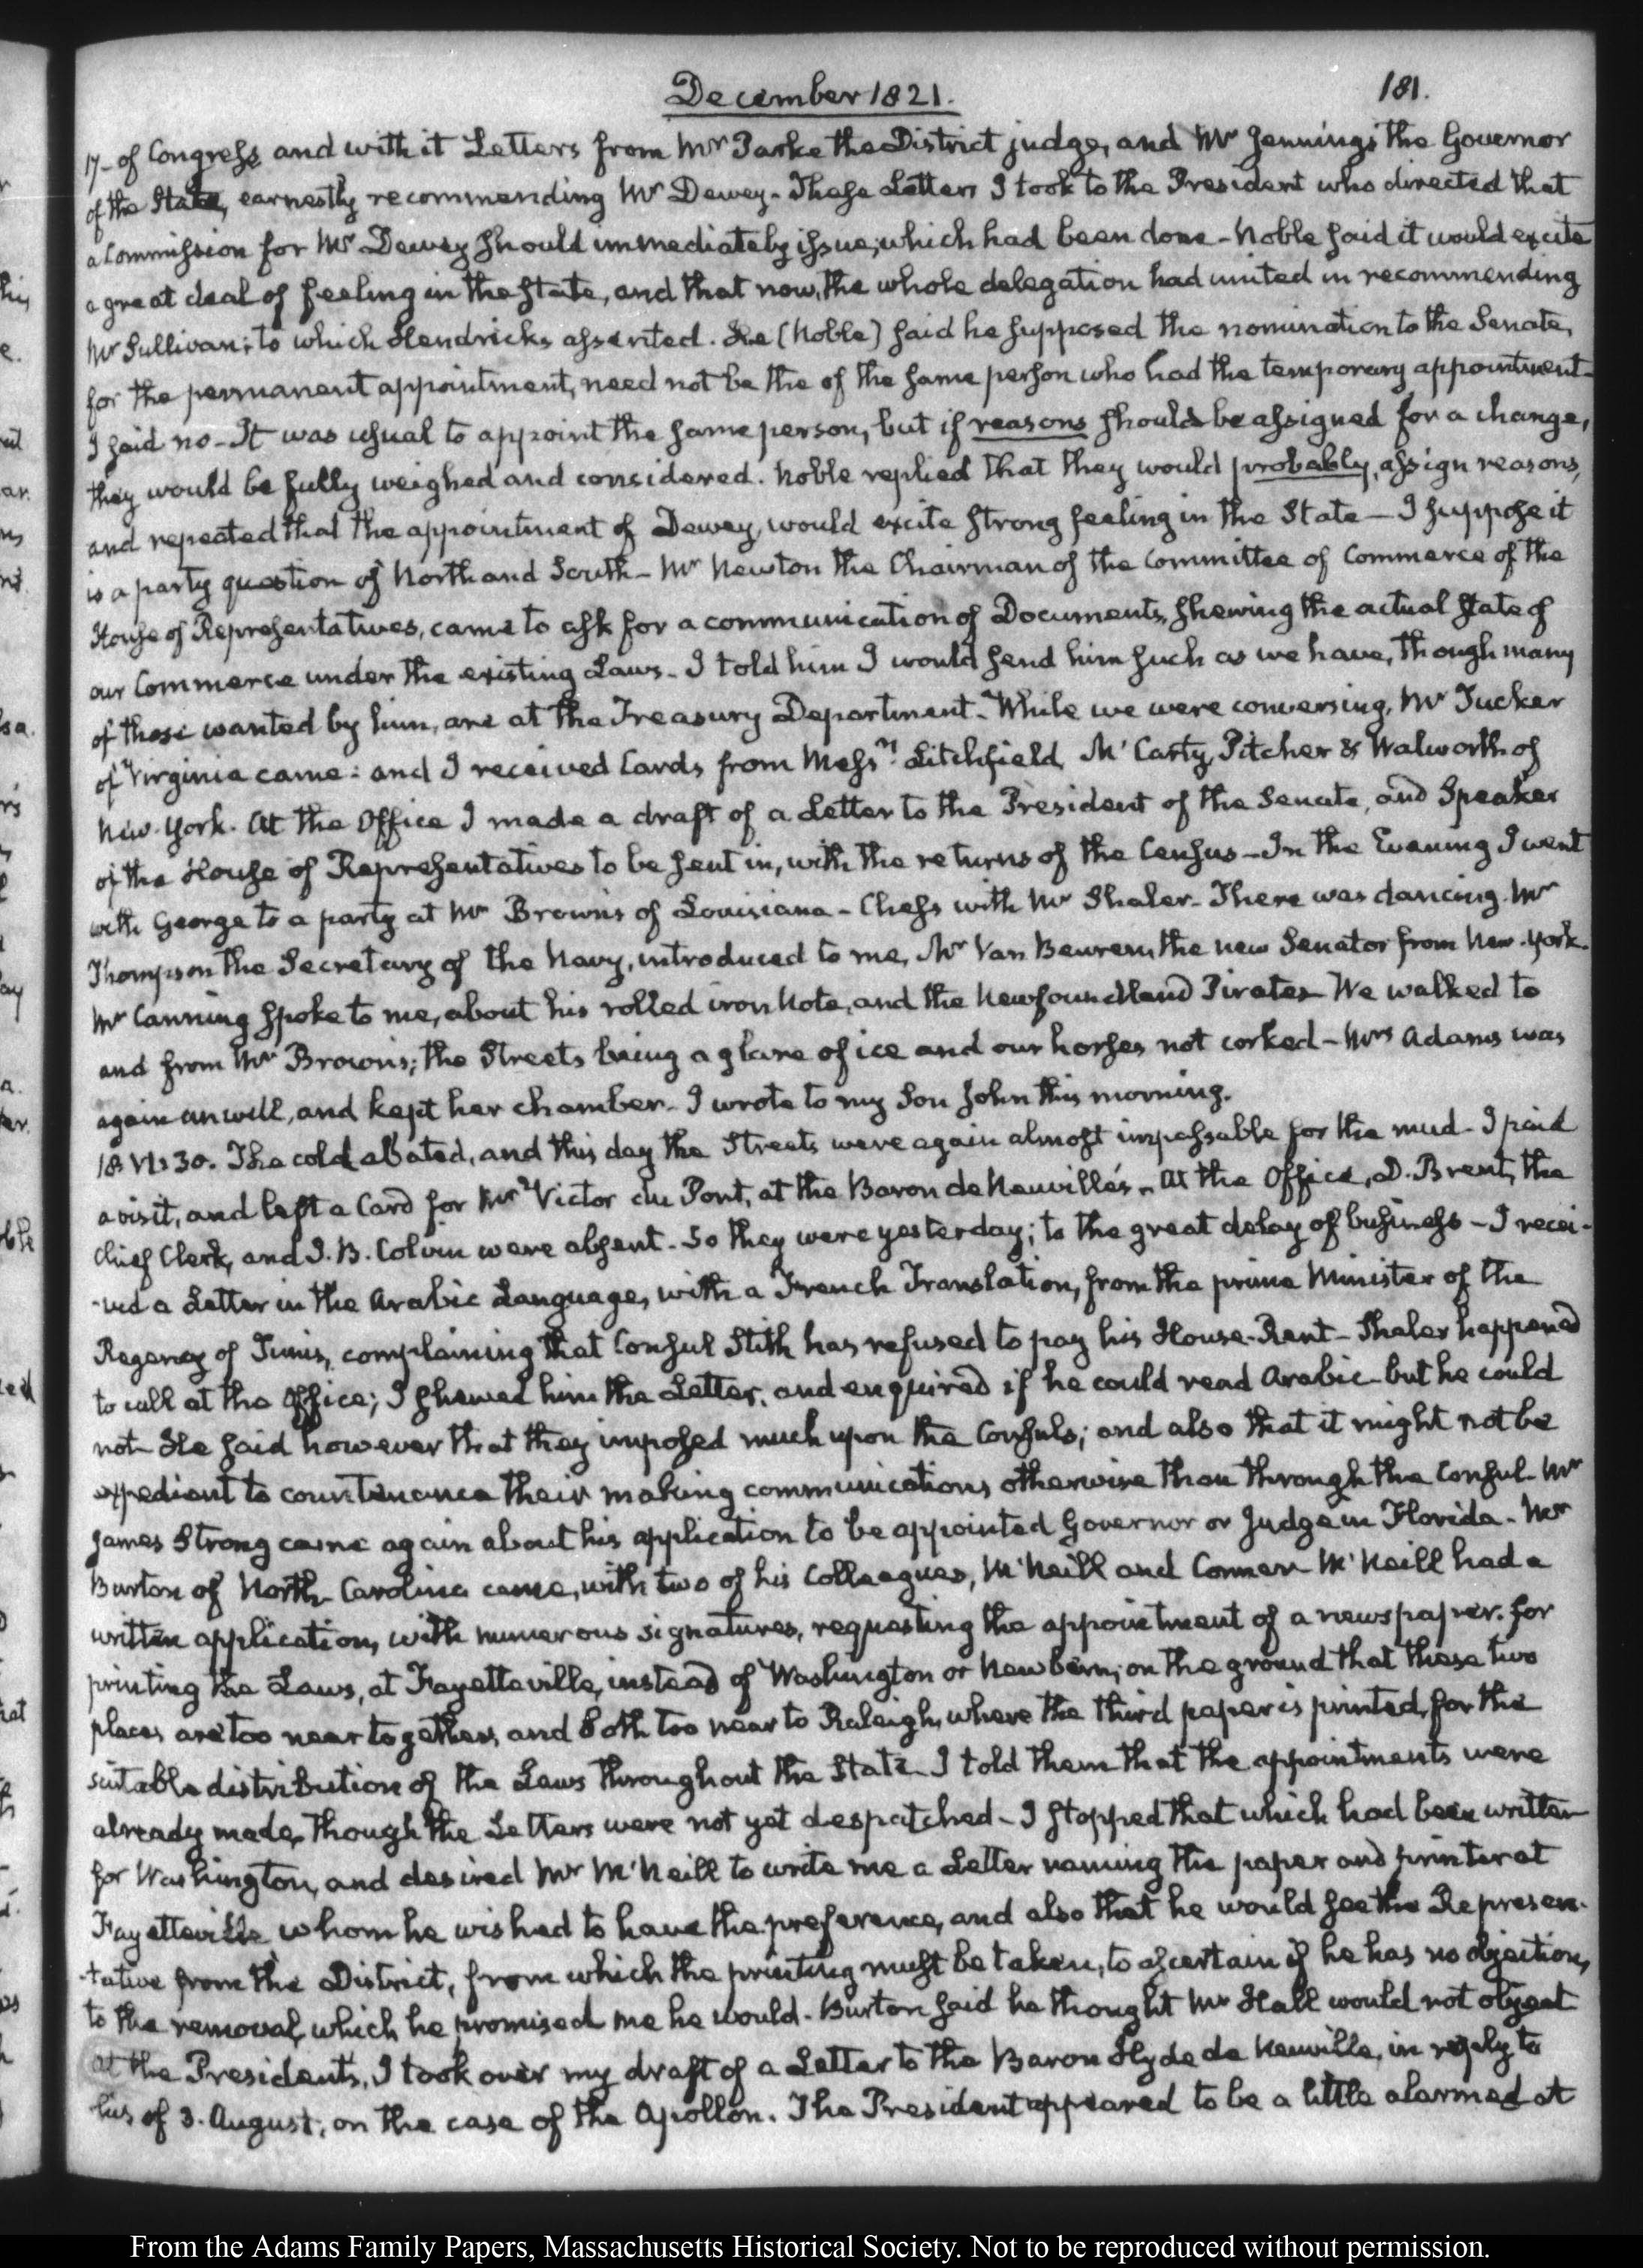 December 1821.
181.
17- of Congress and with it Letters from Mr Parke the District judge, and Mr Jennings the Governor
of the State, earnestly recommending Mr Dewey- These Letters I took to the President who directed that
a Commission for Mr Dewey should immediately issue; which had been done- Noble said it would excite
a great deal of feeling in the State, and that now, the whole delegation had united in recommending
Mr Sullivan; to which Hendricks assented. He (Noble) said he supposed the nomination to the Senate,
for the permanent appointment, need not be the of the same person who had the temporary appointment-
I said no- It was usual to appoint the same person, but if reasons should be assigned for a change,
they would be fully weighed and considered. Noble replied that they would probably, assign reasons,
and repeated that the appointment of Dewey, would excite strong feeling in the State- I suppose it
is a party question of North and South- Mr Newton the Chairman of the Committee of Commerce of the
House of Representatives, came to ask for a communication of Documents, shewing the actual state of
our Commerce under the existing Laws- I told him I would send him such as we have, though many
of those wanted by him, are at the Treasury Department- While we were conversing, Mr Tucker
of Virginia came: and I received Cards from Messrs Litchfield, McCarty, Pitcher & Walworth of
New-York. At the Office I made a draft of a Letter to the President of the Senate, and Speaker
of the House of Representatives to be sent in, with the returns of the Census- In the Evening I went
with George to a party at Mr Brown's of Louisiana- Chess with Mr Shaler- There was dancing. Mr
Thompson the Secretary of the Navy, introduced to me, Mr Van Beuren, the new Senator from New-York.
Mr Canning spoke to me, about his rolled iron Note, and the Newfoundland Pirates- We walked to
and from Mr Brown's; the Streets being a glare of ice and our horses not corked- Mrs Adams was
again unwell, and kept her chamber- I wrote to my Son John this morning.
18. VI:30. The cold abated, and this day the Streets were again almost impassable for the mud- I paid
a visit, and left a Card for Mr Victor du Pont, at the Baron de Neuville's- At the Office, D. Brent, the
chief Clerk, and J. B. Colvin were absent- So they were yesterday; to the great delay of business- I recei-
-ved a Letter in the Arabic Language, with a French Translation, from the prime Minister of the
Regency of Tunis, complaining that Consul Stith has refused to pay his House-Rent- Shaler happened
to call at the Office; I shewed him the Letter, and enquired if he could read Arabic- but he could
not- He said however that they imposed much upon the Consuls; and also that it might not be
expedient to countenance their making communications otherwise than through the Consul- Mr
James Strong came again about his application to be appointed Governor or Judge in Florida- Mr
Burton of North-Carolina came, with two of his Colleagues, McNeill and Conner- McNeill had a
written application, with numerous signatures, requesting the appointment of a newspaper for
printing the Laws, at Fayetteville, instead of Washington or Newbern; on the ground that these two
places are too near together, and both too near to Raleigh, where the third paper is printed, for the
suitable distribution of the Laws throughout the State- I told them that the appointments were
already made, though the Letters were not yet despatched- I stopped that which had been written
for Washington, and desired Mr McNeill to write me a Letter naming the paper and printer at
Fayetteville whom he wished to have the preference, and also that he would see the Represen-
-tative from the District, from which the printing must be taken, to ascertain if he has no objection,
to the removal, which he promised me he would- Burton said he thought Mr Hall would not object
At the President's, I took over my draft of a Letter to the Baron Hyde de Neuville, in reply to
his of 3. August; on the case of the Apollon. The President appeared to be a little alarmed at
From the Adams Family Papers, Massachusetts Historical Society. Not to be reproduced without permission.